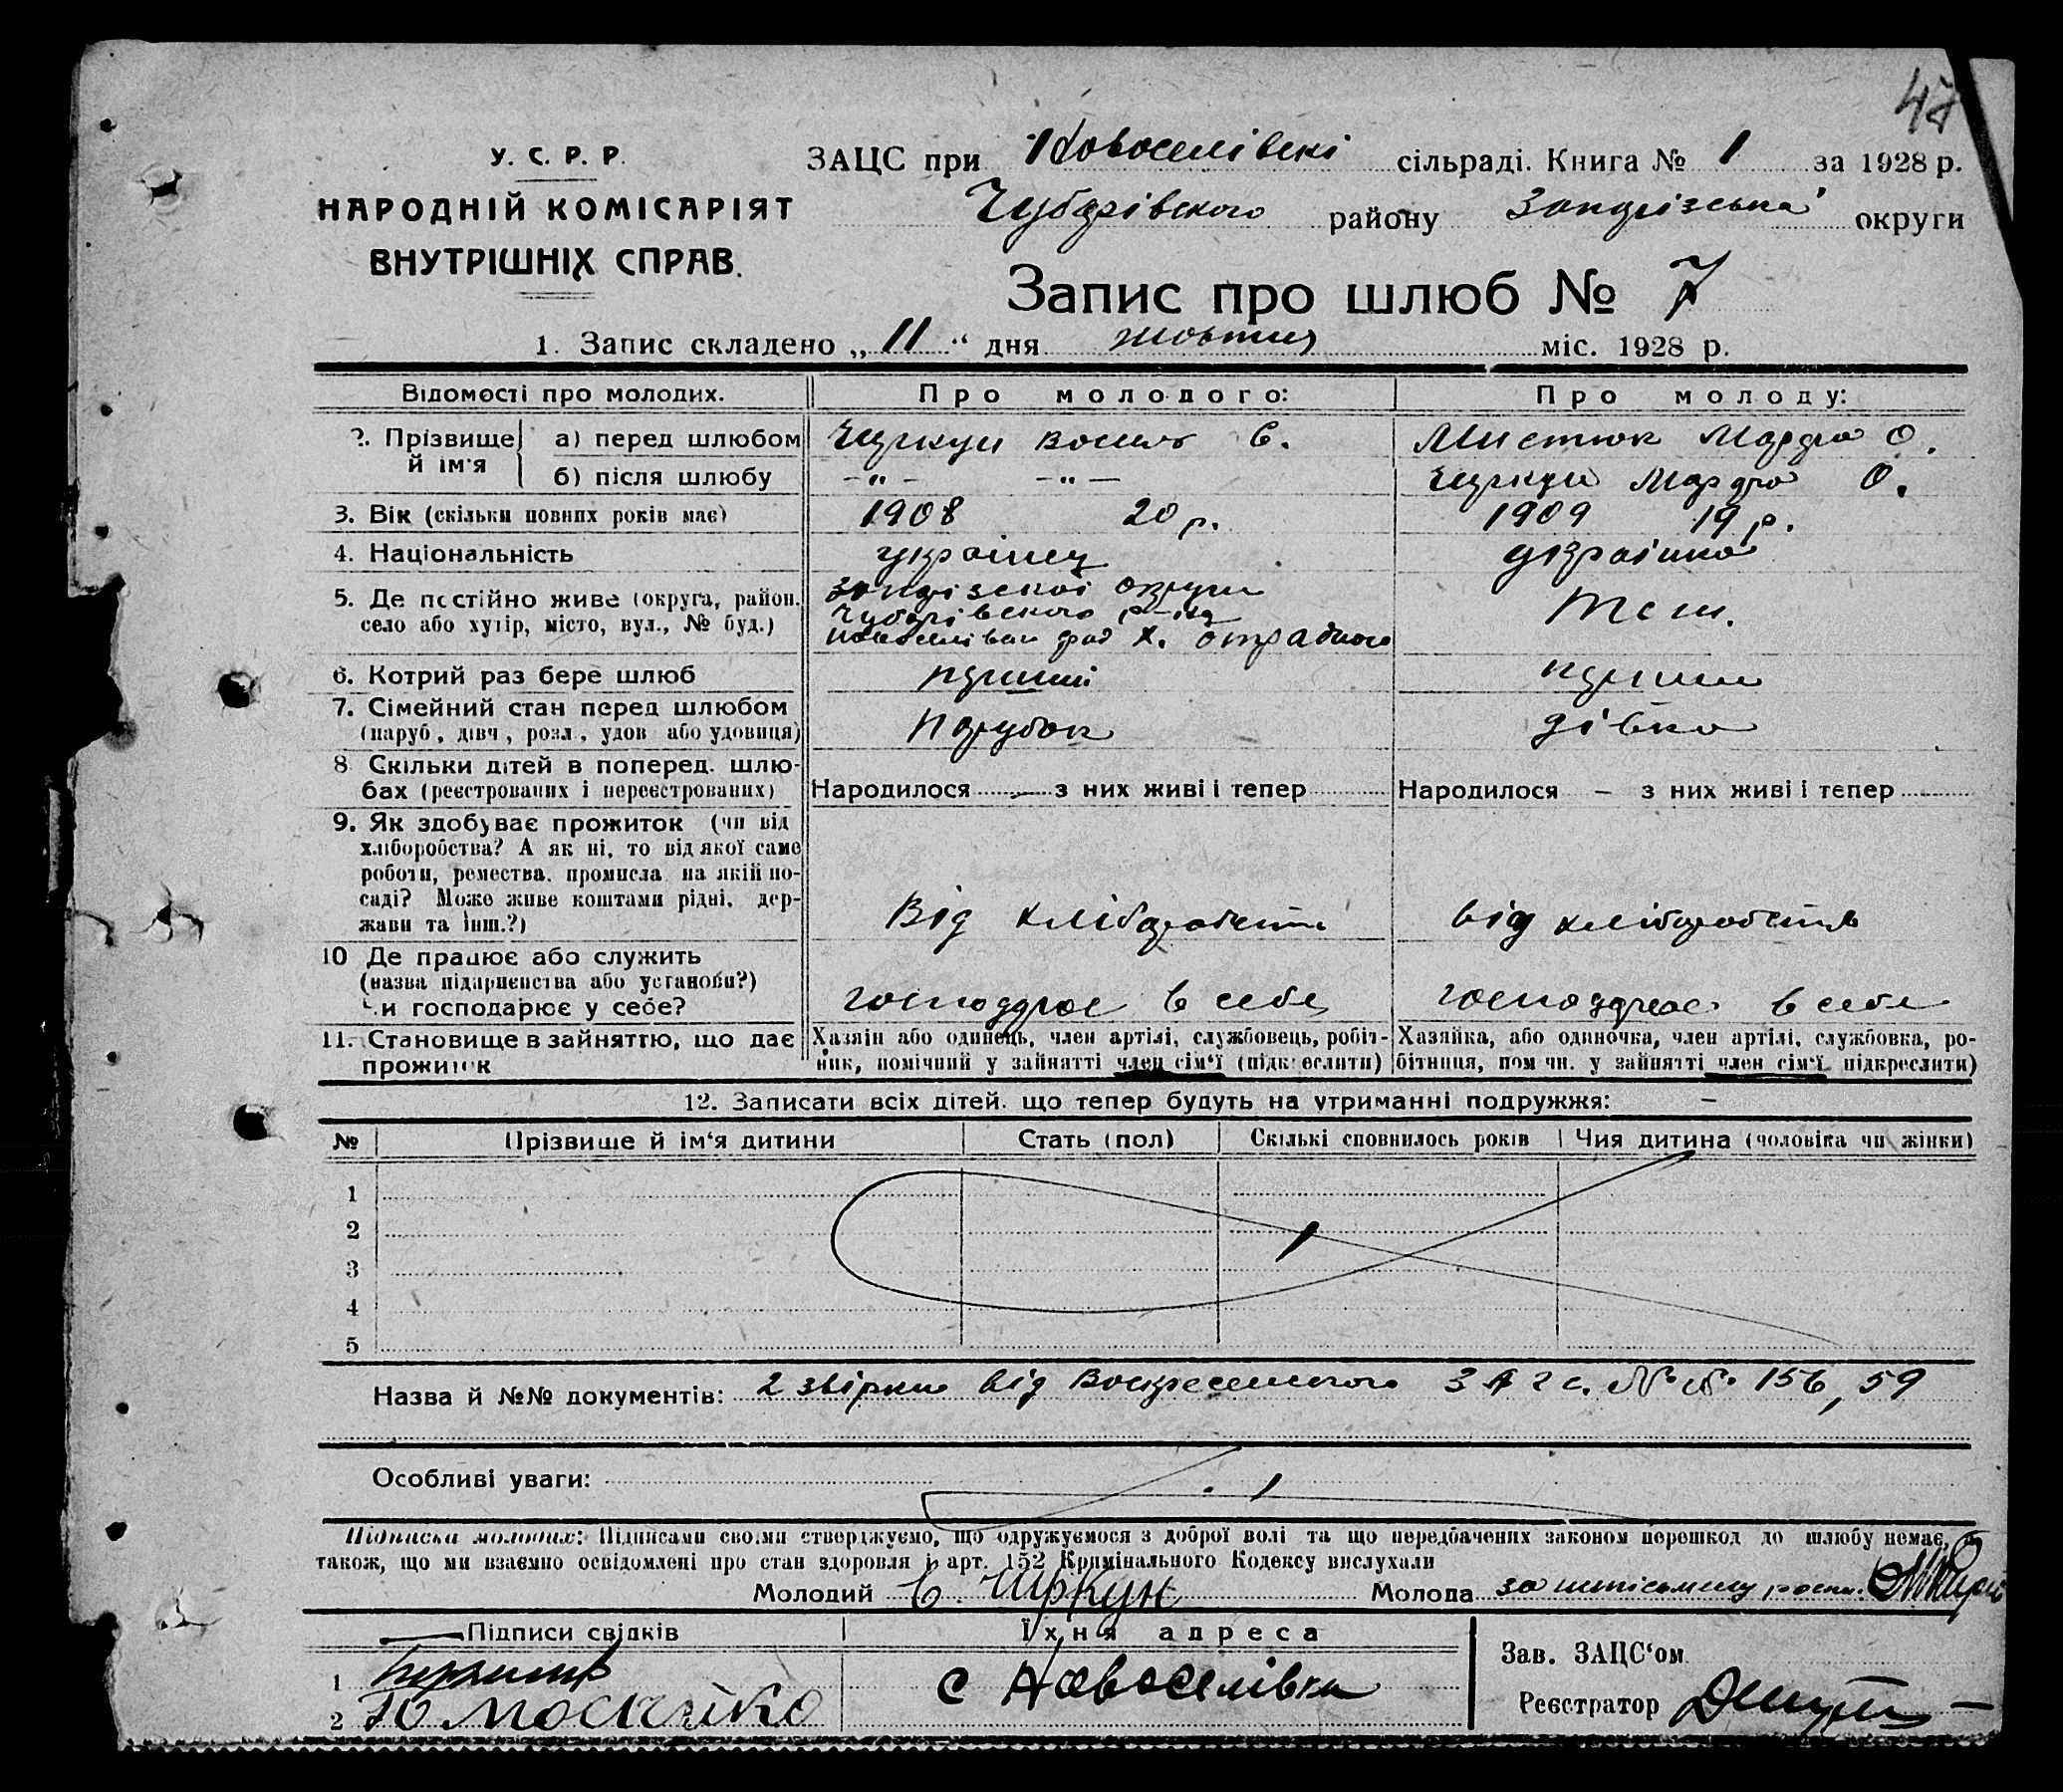 47
У. С. Р. Р.
НАРОДНІЙ КОМІСАРІЯТ
ВНУТРІШНІХ СПРАВ.
ЗАЦС при Новоселівскі сільраді. Книга № 1 за 1928 р.
Чубарівского району Запорізська округи
Запис про шлюб № 7
1. Запис складено „ 11 “ дня жовтня міс. 1928 р.
Відомості про молодих. Про молодого: Про молоду:
2. Прізвище й ім'я а) перед шлюбом Чиркун Василь Є. Мистюк Марфа О.
б) після шлюбу -„- -„- Чиркун Марфа О.
3. Вік (скільки повних років має) 1908 20 р. 1909 19 р.
4. Національність українец українка
5. Де постійно живе (округа, район, село або хутір, місто, вул., № буд.) Запорізскої округи
Чубарівского р-на
Новоселівськ рад х. Отрадного
Теж.
6. Котрий раз бере шлюб перший перший
7. Сімейний стан перед шлюбом (паруб., дівч., розл., удов. або удовиця) парубок дівка
8. Скільки дітей в поперед. шлюбах (реєстрованих і нереєстрованих) Народилося — з них живі і тепер Народилося — з них живі і тепер
9. Як здобуває прожиток (чи від
хліборобства? А як ні, то від якої саме
роботи, ремества, промисла, на якій по-
саді? Може живе коштами рідні, дер-
жави та інш.?) Від хліборобства від хліборобства
10 Де працює або служить
(назва підприємства або установи?)
Чи господарює у себе? господарює в себе господарює в себе
11. Становище в зайняттю, що дає прожиток
Хазяїн або одинець, член артілі, службовець, робіт-
ник, помічний у зайнятті член сім'ї (підкреслити)
Хазяйка, або одиночка, член артілі, службовка, ро-
бітниця, помічн. у зайнятті член сім'ї підкреслити)
12. Записати всіх дітей, що тепер будуть на утриманні подружжя: —
№ Прізвище й ім'я дитини Стать (пол) Скількі сповнилось років Чия дитина (чоловіка чи жінки)
1
2
3
4
5
Назва й №№ документів: 2 звірки від Воскресенского ЗАГС. №№ 156, 59
Особливі уваги:
Підписи молодих: Підписами своїми стверджуємо, що одружуємося з доброї волі та що передбачених законом перешкод до шлюбу немає, а
також, що ми взаємно освідомлені про стан здоровля й арт. 152 Кримінального Кодексу вислухали
Молодий Є. Чіркун Молода за неписьмену розп.
Підписи свідків Їхня адреса
1
2 Ю Москайко
с Новоселівка
Зав. ЗАЦС'ом
Реєстратор